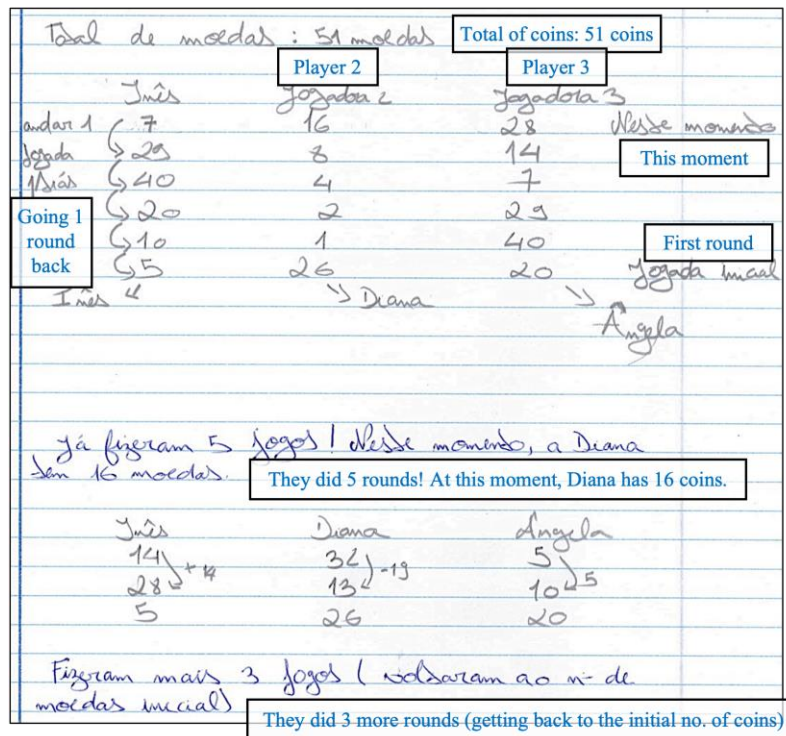 Total de moedas : 51 moedas Total of coins: 51 coins
Player 2 Player 3
Inês Jogadora 2 Jogadora 3
andar 1 7 16 28 Nesse momento
jogada 29 8 14 This moment
atrás 40 4 7
Going 1 round back
20 2 29
10 1 40 First round
5 26 20 Jogada inicial
Inês Diana Ângela
Já fizeram 5 jogos! Nesse momento, a Diana
tem 16 moedas. They did 5 rounds! At this moment, Diana has 16 coins.
Inês Diana Ângela
14 32 5
+14 -19 5
28 13 10
5 26 20
Fizeram mais 3 jogos (voltaram ao nº de
moedas inicial) They did 3 more rounds (getting back to the initial no. of coins)